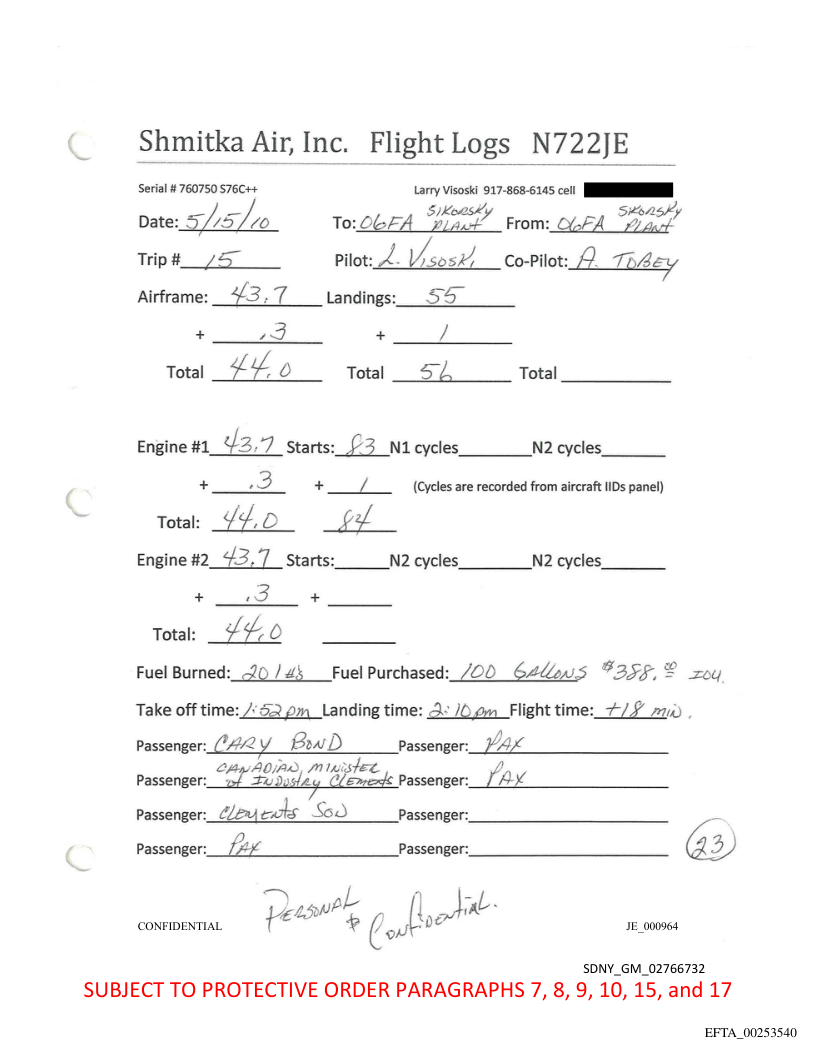 Shmitka Air, Inc. Flight Logs N722JE
Serial # 760750 S76C++ Larry Visoski 917-868-6145 cell
Date: 5/15/10 To: 06FA SIKORSKY PLANT From: 06FA SIKORSKY PLANT
Trip # 15 Pilot: L. VISOSKI Co-Pilot: A. TOBEY
Airframe: 43.7 Landings: 55
+ .3 + 1
Total 44.0 Total 56 Total
Engine #1 43.7 Starts: 83 N1 cycles N2 cycles
+ .3 + 1 (Cycles are recorded from aircraft IIDs panel)
Total: 44.0 84
Engine #2 43.7 Starts: N2 cycles N2 cycles
+ .3 +
Total: 44.0
Fuel Burned: 201 #s Fuel Purchased: 100 GALLONS $388.00 IOU.
Take off time: 1:52 pm Landing time: 2:10 pm Flight time: +18 min.
Passenger: CARY BOND Passenger: PAX
Passenger: CANADIAN, MINISTER of INDUSTRY CLEMENTS Passenger: PAX
Passenger: CLEMENTS SON Passenger:
Passenger: PAX Passenger:
23
PERSONAL & CONFIDENTIAL.
CONFIDENTIAL JE_000964
SDNY_GM_02766732
SUBJECT TO PROTECTIVE ORDER PARAGRAPHS 7, 8, 9, 10, 15, and 17
EFTA_00253540